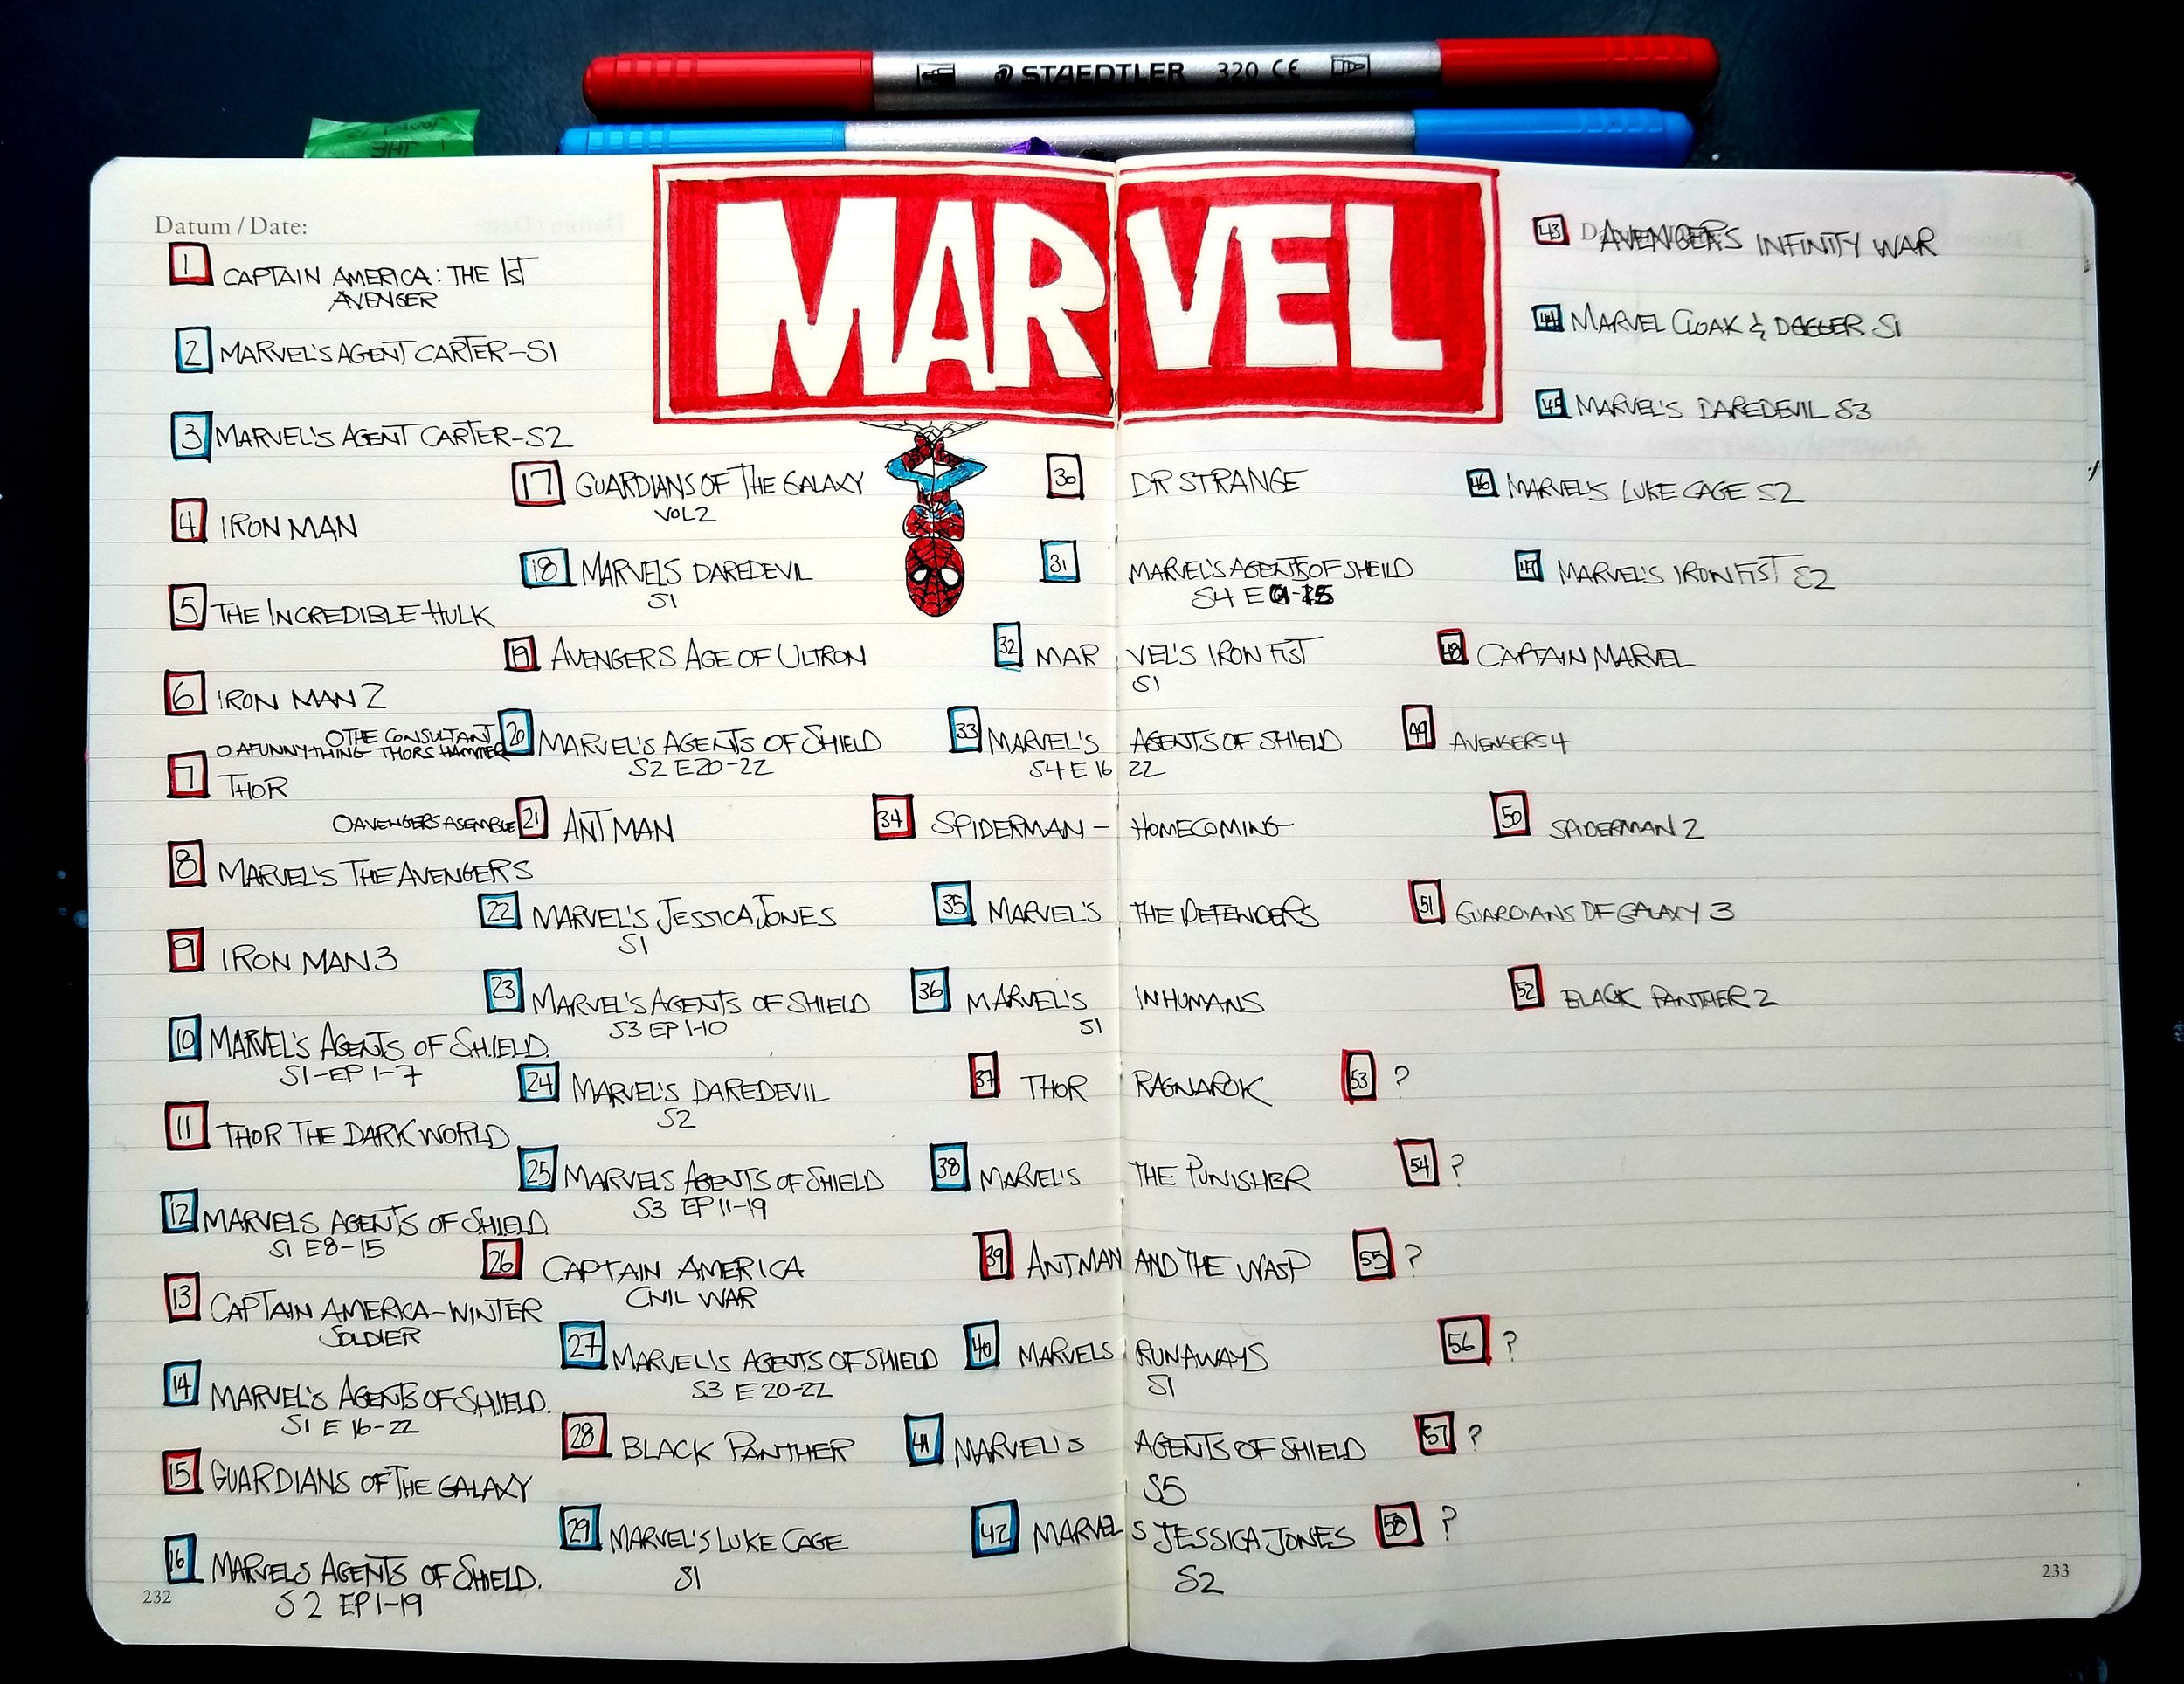 STAEDTLER 320 CE
THE
MARVEL
Datum / Date:
1 CAPTAIN AMERICA: THE 1ST
AVENGER
2 MARVEL'S AGENT CARTER-S1
3 MARVEL'S AGENT CARTER-S2
4 IRON MAN
5 THE INCREDIBLE HULK
6 IRON MAN 2
O THE CONSULTANT
O A FUNNY THING THORS HAMMER
7 THOR
O AVENGERS ASEMBLE
8 MARVEL'S THE AVENGERS
9 IRON MAN 3
10 MARVEL'S AGENTS OF SH.IELD.
S1-EP 1-7
11 THOR THE DARK WORLD
12 MARVELS AGENTS OF SHIELD.
S1 E8-15
13 CAPTAIN AMERICA-WINTER
SOLDIER
14 MARVEL'S AGENTS OF SHIELD.
S1 E 16-22
15 GUARDIANS OF THE GALAXY
16 MARVELS AGENTS OF SHIELD.
S2 EP 1-19
232
17 GUARDIANS OF THE GALAXY
VOL 2
18 MARVELS DAREDEVIL
S1
19 AVENGERS AGE OF ULTRON
20 MARVEL'S AGENTS OF SHIELD
S2 E20-22
21 ANT MAN
22 MARVEL'S JESSICA JONES
S1
23 MARVEL'S AGENTS OF SHIELD
S3 EP 1-10
24 MARVEL'S DAREDEVIL
S2
25 MARVELS AGENTS OF SHIELD
S3 EP 11-19
26 CAPTAIN AMERICA
CIVIL WAR
27 MARVEL'S AGENTS OF SHIELD
S3 E 20-22
28 BLACK PANTHER
29 MARVEL'S LUKE CAGE
S1
30 DR STRANGE
31 MARVEL'S AGENTS OF SHEILD
S4 E
32 MARVEL'S IRON FIST
S1
33 MARVEL'S AGENTS OF SHIELD
S4 E 16 22
34 SPIDERMAN - HOMECOMING
35 MARVEL'S THE DEFENDERS
36 MARVEL'S INHUMANS
S1
37 THOR RAGNAROK
38 MARVEL'S THE PUNISHER
39 ANTMAN AND THE WASP
40 MARVELS RUNAWAYS
S1
41 MARVEL'S AGENTS OF SHIELD
S5
42 MARVEL S JESSICA JONES
S2
43 AVENGERS INFINITY WAR
44 MARVEL CLOAK & DAGGER S1
45 MARVEL'S DAREDEVIL S3
46 MARVEL'S LUKE CAGE S2
47 MARVEL'S IRON FIST S2
48 CAPTAIN MARVEL
49 AVENGERS 4
50 SPIDERMAN 2
51 GUARDIANS OF GALAXY 3
52 BLACK PANTHER 2
53 ?
54 ?
55 ?
56 ?
57 ?
58 ?
233